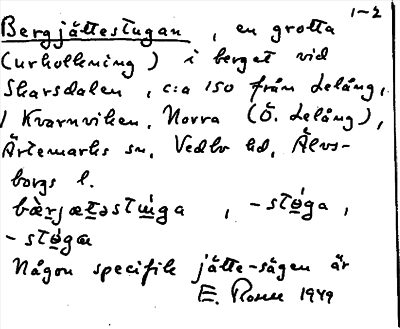 1-2
Bergjättestugan, en grotta
(urholkning) i berget vid
Skarsdalen, c:a 150 från Lelång,
Kvarnviken, Norra (Ö. Lelång),
Ärtemarks sn, Vedbo hd, Älvs-
borgs l.
bæ̀rjæt̠əstɯ̠́ga, -stɵ̠ga,
-stɵ̠gæ
Någon specifik jätte-sägen är
E. 1949